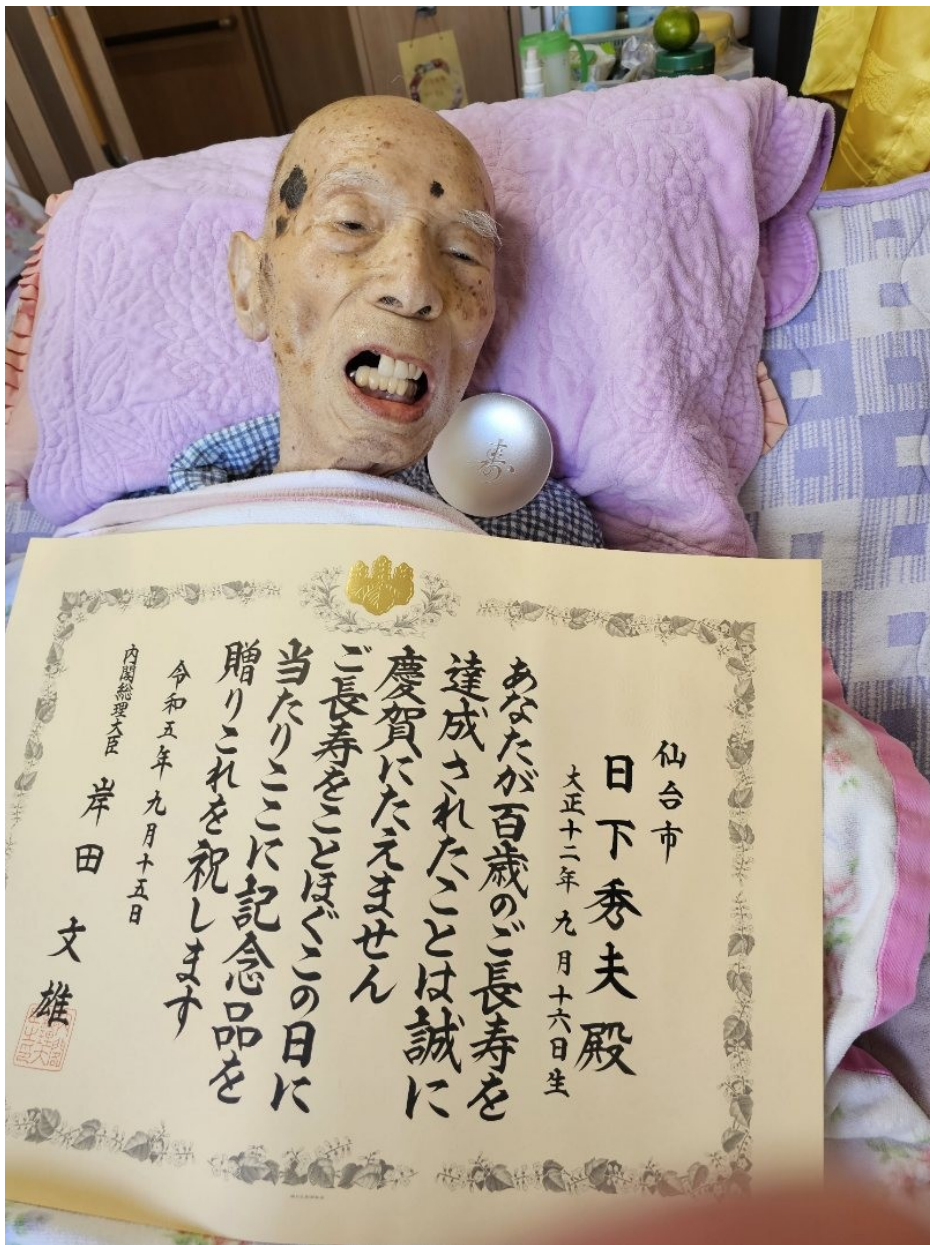 寿
仙台市
日下秀夫殿
大正十二年九月十六日生
あなたが百歳のご長寿を
達成されたことは誠に
慶賀にたえません
ご長寿をことほぐこの日に
当たりここに記念品を
贈りこれを祝します
令和五年九月十五日
内閣総理大臣 岸田文雄